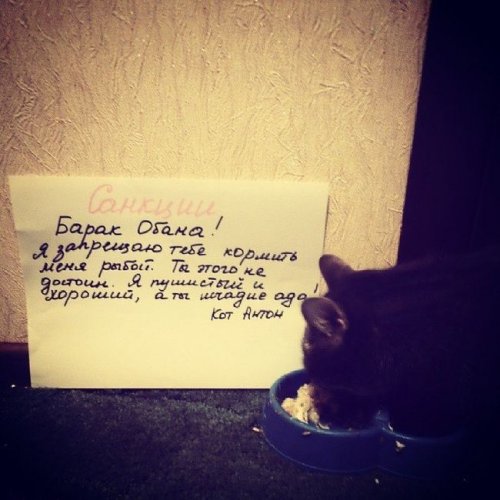 Санкции
Барак Обама!
Я запрещаю тебе кормить
меня рыбой. Ты этого не
достоин. Я пушистый и
хороший, а ты исчадие ада!
Кот Антон